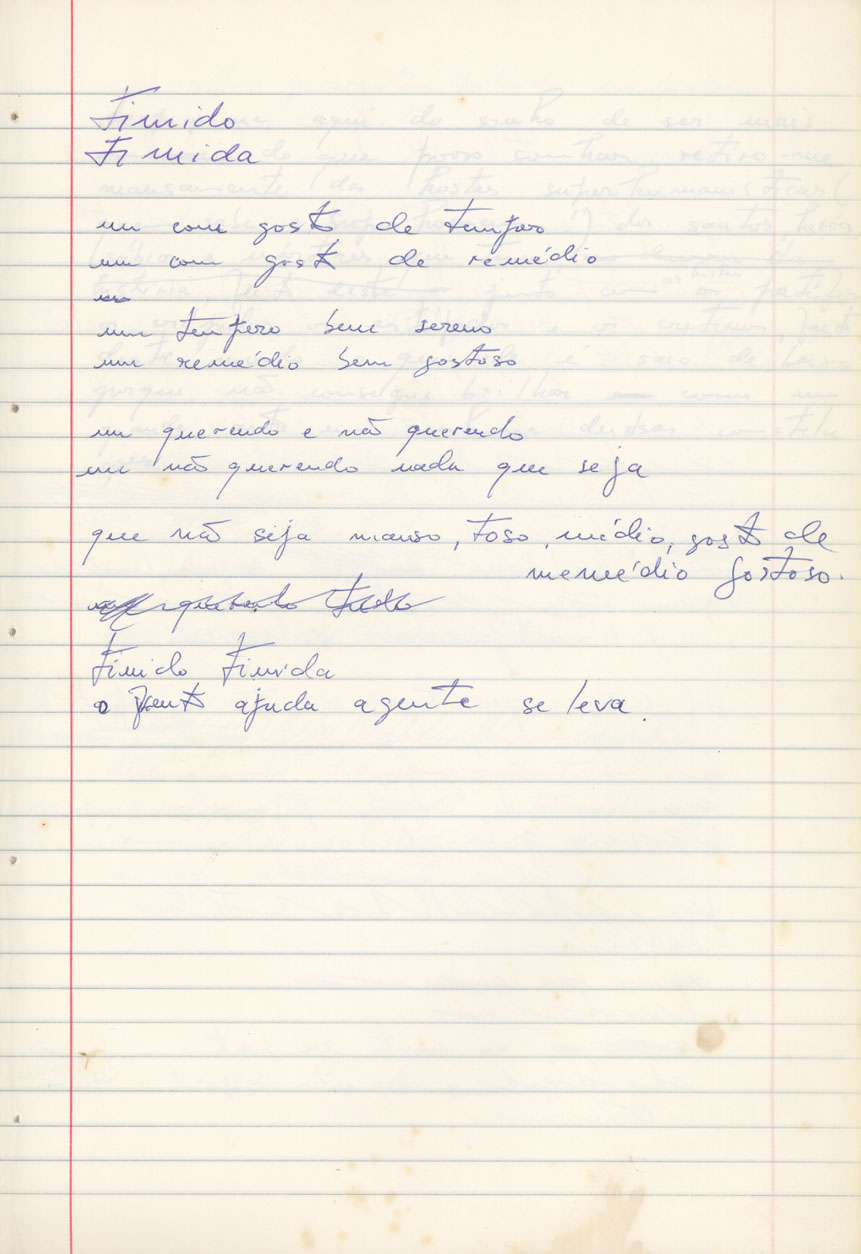 Timido
Timida
um com gosto de tempero
um com gosto de remédio
um tempero bem sereno
um remédio bem gostoso
um querendo e não querendo
um não querendo nada que seja
que não seja manso, toso, médio, gosto de
memédio gostoso.
Timido Timida
o ajuda agente se leva.